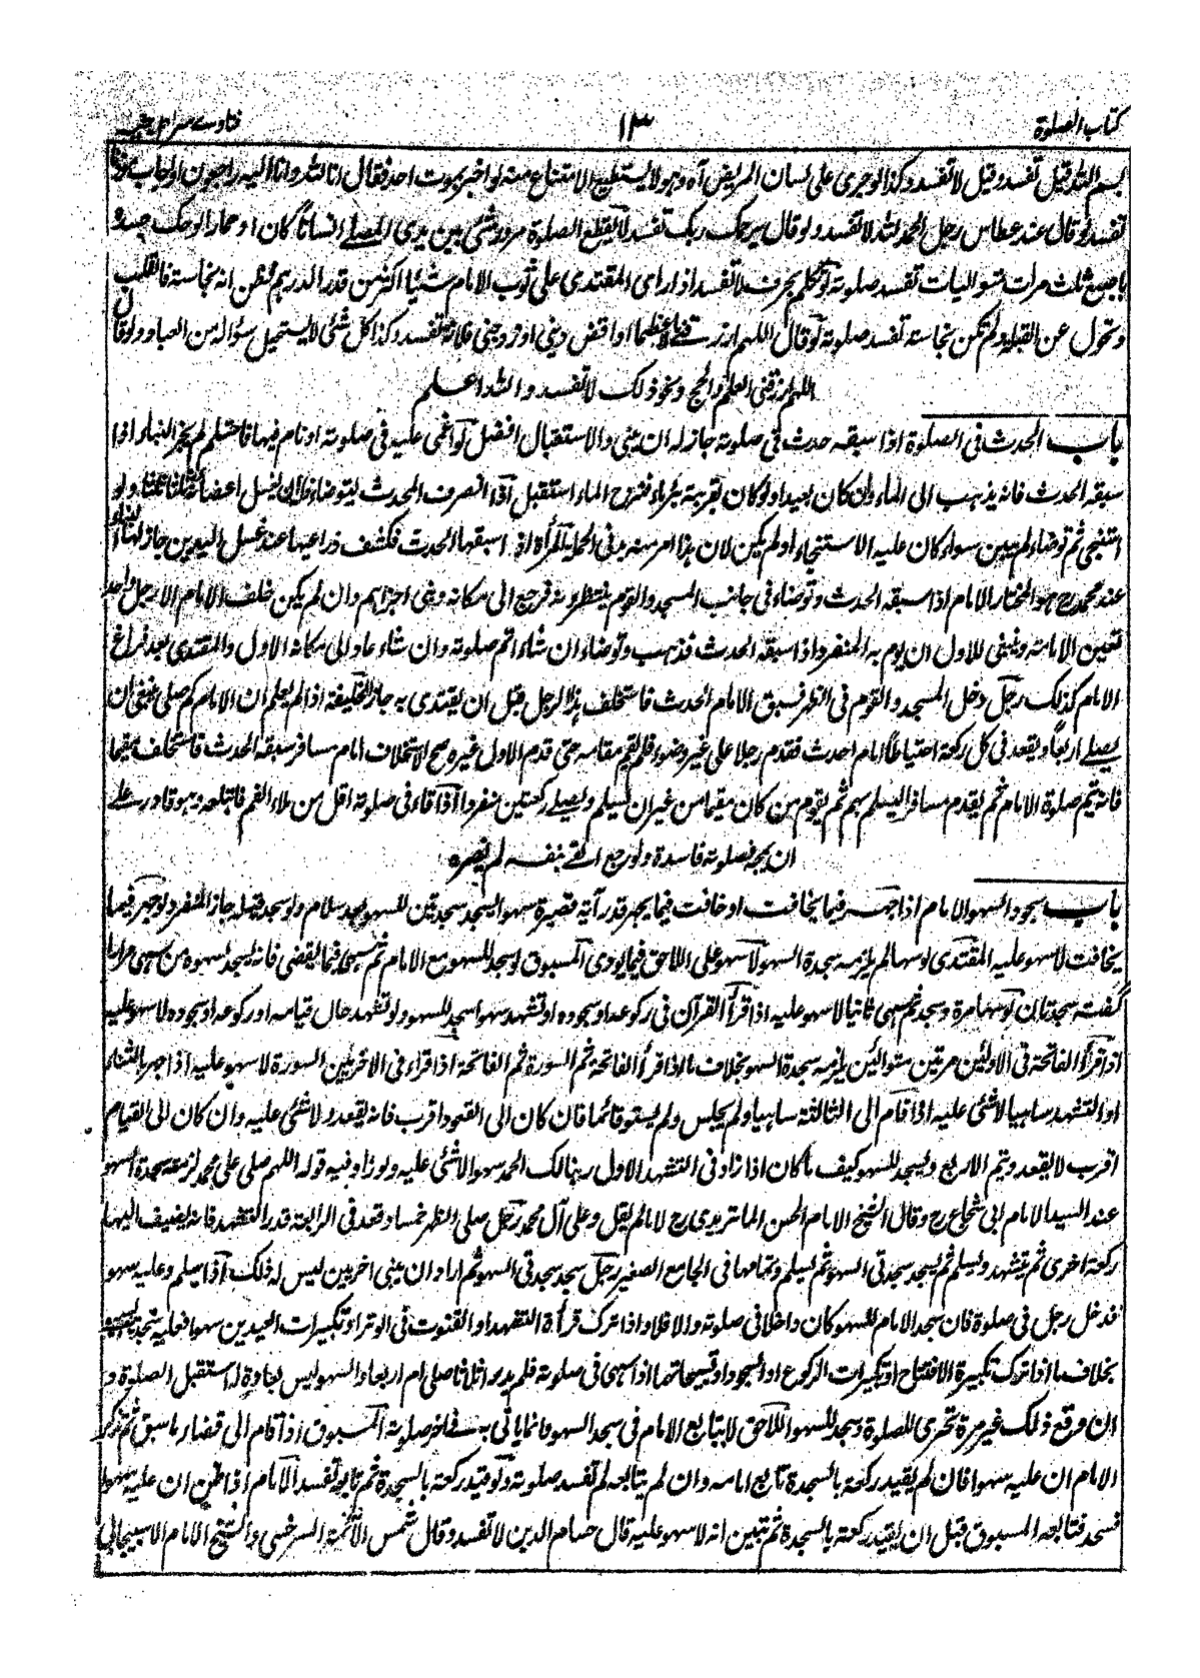 كتاب الصلوة
١٣
فتاوے سراجيه
بسم الله قيل تفسد وقيل لا تفسد وكذا لو جرى على لسان المريض آه وهو لا يستطيع الامتناع منه لو اخبر بموت احد فقال انا لله وانا اليه راجعون او اجاب مؤذنا
تفسد لو قال عند عطاس رجل الحمد لله لا تفسد ولو قال يرحمك ربك تفسد لا يقطع الصلوة مرور شئ بين يدى المصلے انسانا كان او حمارا لو حك جسده
باصبع ثلث مرات متواليات تفسد صلوته لو تكلم بحرف لا تفسد اذا راى المقتدى على ثوب الامام شيئا اكثر من قدر الدرهم فظن انه نجاسة فانقلب
وتحول عن القبلة ولم تكن نجاسة تفسد صلوته لو قال اللهم ارزقنے او اقض دينى او زوجنى فلانة تفسد وكذا كل شئ لا يستحيل سؤاله من العباد ولو قال
اللهم ارزقنى العلم والحج ونحو ذلك لا تفسد والله اعلم
باب الحدث فى الصلوة اذا سبقه حدث فى صلوته جاز له ان يبنى والاستقبال افضل لو اغمى عليه فى صلوته او نام فيها فاحتلم لم يجز البناء اذا
سبقه الحدث فانه يذهب الى الماء وان كان بعيدا ولو كان بقربه بئر ماء فنزح الماء استقبل اذا انصرف المحدث ليتوضاء فانه يغسل اعضائه ثلثا ثلثا ولو
استنجى ثم توضاء لم يبن سواء كان عليه الاستنجاء او لم يكن لان هذا امر منه بد فى الجملة المرأة اذا سبقها الحدث فكشف ذراعيها عند غسل اليدين جاز لها البناء
عند محمد رح هو المختار الامام اذا سبقه الحدث وتوضاء فى جانب المسجد والقوم ينتظرونه فرجع الى مكانه وبنى اجزاهم وان لم يكن خلف الامام الا رجل واحد
تعين الامامة وينبغى للاول ان يوم به المنفرد اذا سبقه الحدث فذهب وتوضاء ان شاء اتم صلوته وان شاء عاد الى مكانه الاول والمقتدى بعد فراغ
الامام كذلك رجل دخل المسجد والقوم فى الظهر فسبق الامام الحدث فاستخلف هذا الرجل قبل ان يقتدى به جاز الخليفة اذا لم يعلم ان الامام كم صلى ينبغى ان
يصلے اربعا ويقعد فى كل ركعة احتياطا امام احدث فقدم رجلا على غير وضوء فلم يقم مقامه حتى قدم الاول غيره صح الاستخلاف امام مسافر سبقه الحدث فاستخلف مقيما
فانه يتم صلوة الامام ثم يقدم مسافرا ليسلم بهم ثم يقوم من كان مقيما من غير ان يسلم ويصلے ركعتين منفردا اذا قاء فى صلوته اقل من ملاء الفم فابتلعه وهو قادر علے
ان يمجه فصلوته فاسدة ولو رجع القے بنفسه لم يضره
باب سجود السهو الامام اذا جهر فيما يخافت او خافت فيما يجهر قدر آية قصيرة سهوا يسجد سجدتين للسهو بعد سلام ولو سجد قبله جاز المنفرد لو جهر فيما
يخافت لا سهو عليه المقتدى لو سها لم يلزمه سجدة السهو لا سهو على اللاحق فيما يودى المسبوق لو سجد للسهو مع الامام ثم سهى فيما يقضى فانه يسجد لسهوه من سهى مرارا
كفته سجدتان لو سها مرة وسجد ثم سهى ثانيا لا سهو عليه اذا قرأ القرآن فى ركوعه او سجوده او تشهد سهوا سجد للسهو ولو تشهد حال قيامه او ركوعه او سجوده لا سهو عليه
اذا قرأ الفاتحة فى الاوليين مرتين متواليتين يلزمه سجدة السهو بخلاف ما اذا قرأ الفاتحة ثم السورة ثم الفاتحة اذا قراء فى الاخريين السورة لا سهو عليه اذا جهر بالثناء
او التشهد ساهيا لا شئ عليه اذا قام الى الثالثة ساهيا ولم يجلس ولم يستو قائما فان كان الى القعود اقرب فانه يقعد ولا شئ عليه وان كان الى القيام
اقرب لا يقعد ويتم الاربع ويسجد للسهو كيف ما كان اذا زاد فى التشهد الاول ربنا لك الحمد سهوا لا شئ عليه ولو زاد فيه قوله اللهم صلى على محمد لزمته سجدة السهو
عند السيد الامام ابى شجاع رح وقال الشيخ الامام الحسن الماتريدى رح لا ما لم يقل وعلى آل محمد رجل صلى الظهر خمسا وقعد فى الرابعة قدر التشهد فانه يضيف اليها
ركعة اخرى ثم يتشهد ويسلم ثم يسجد سجدتى السهو ثم يسلم وتمامها فى الجامع الصغير رجل سجد سجدتى السهو ثم اراد ان يبنى اخريين ليس له ذلك اذا سلم وعليه سهو
فدخل رجل فى صلوة فان سجد الامام للسهو كان داخلا فى صلوته والا فلا واذا ترك قرأة التشهد او القنوت فى الوتر او تكبيرات العيدين سهوا فعليه سجدة السهو
بخلاف ما اذا ترك تكبيرة الافتتاح او تكبيرات الركوع او السجود او تسبيحاتها اذا سهى فى صلوته فلم يدر اثلثا صلى ام اربعا والسهو ليس بعادة له استقبل الصلوة و
ان وقع ذلك غير مرة تحرى للصلوة وسجد للسهو اللاحق لا يتابع الامام فى سجد السهو فانما ياتى به فے اخر صلوته المسبوق اذا قام الى قضاء ما سبق ثم تذكر
الامام ان عليه سهوا فان لم يقيد ركعة بالسجدة تابع امامه وان لم يتابعه لم تفسد صلوته ولو قيد ركعة بالسجدة ثم تابعه تفسد الامام اذا ظن ان عليه سهوا
فسجد فتابعه المسبوق قبل ان يقيد ركعة بالسجدة ثم تبين انه لا سهو عليه قال حسام الدين لا تفسد وقال شمس الائمة السرخسى والشيخ الامام الاسبيجابى